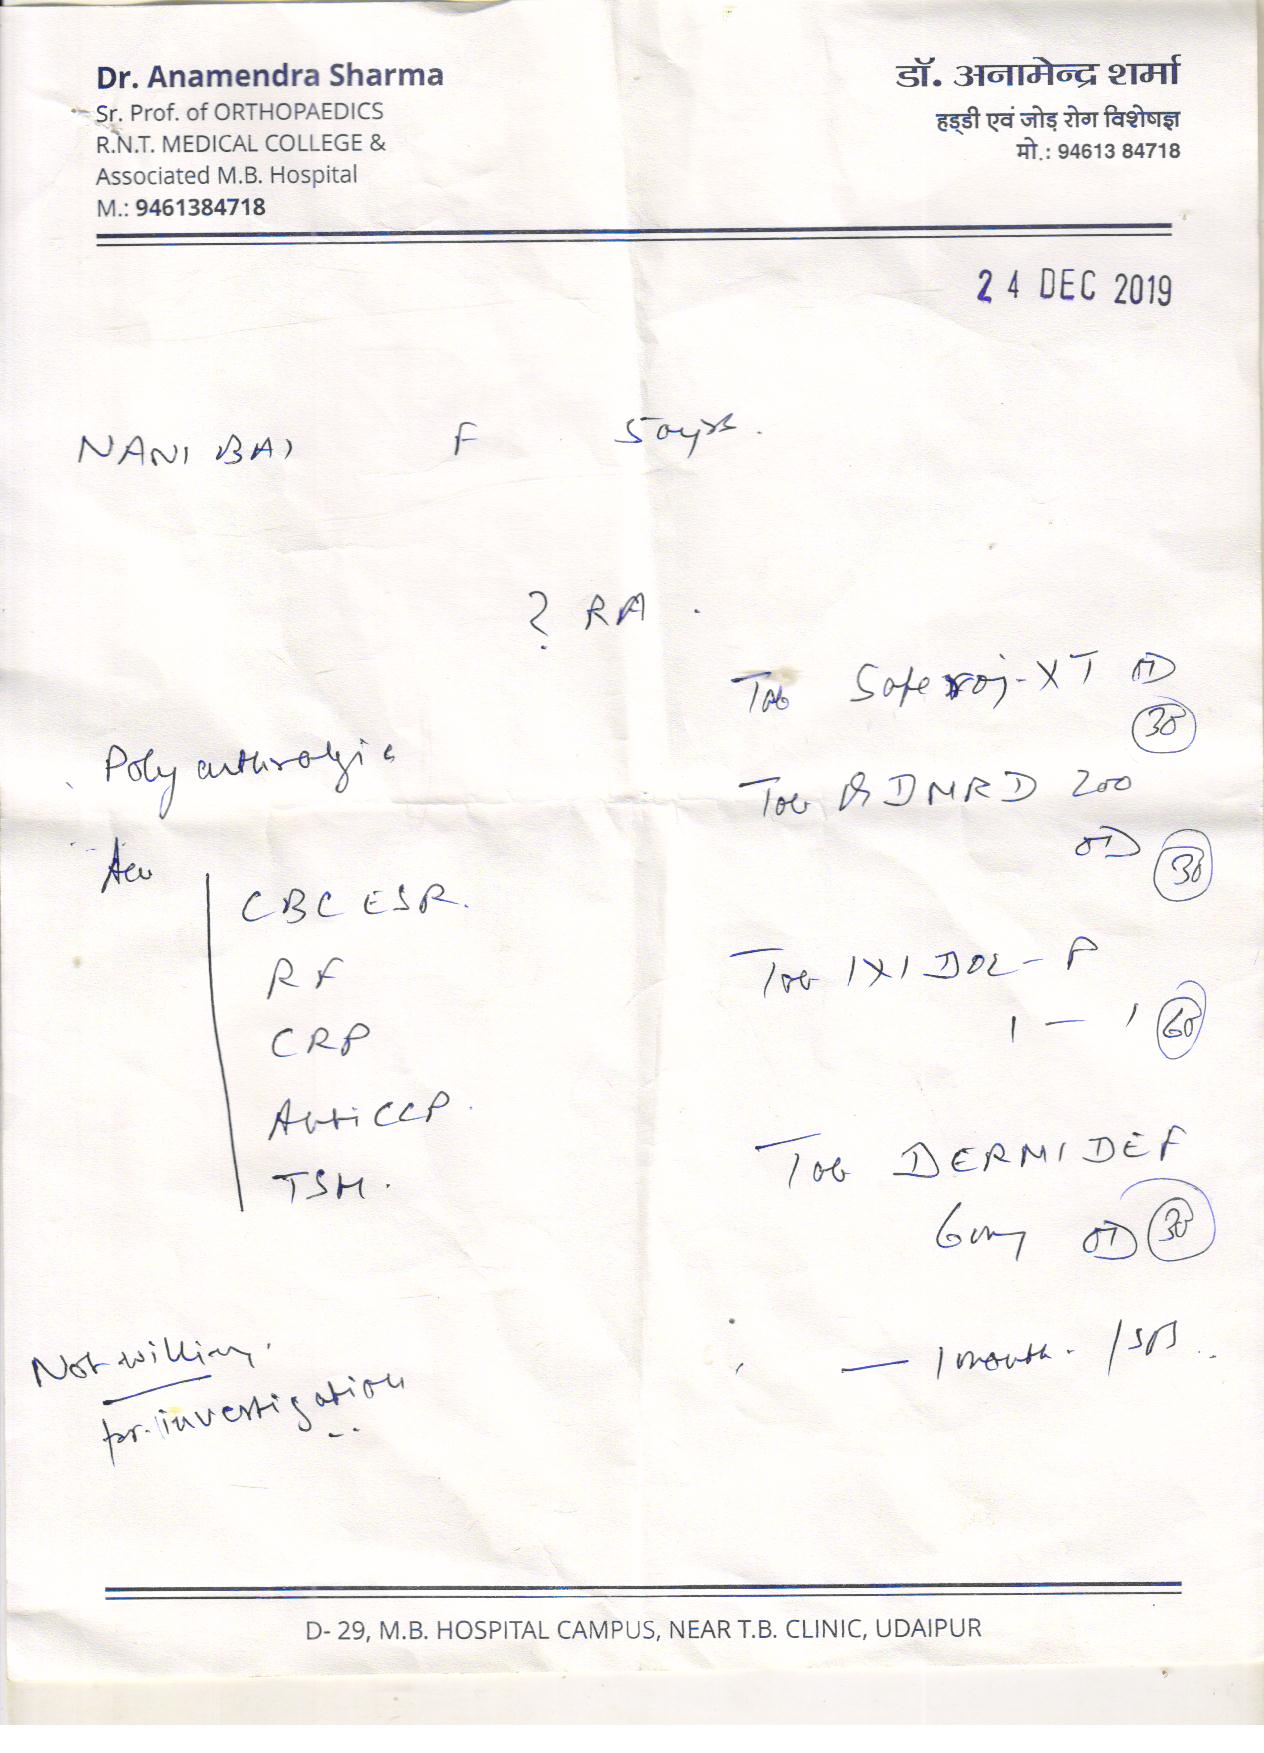 Dr. Anamendra Sharma
Sr. Prof. of ORTHOPAEDICS
R.N.T. MEDICAL COLLEGE &
Associated M.B. Hospital
M.: 9461384718
डॉ. अनामेन्द्र शर्मा
हड्डी एवं जोड़ रोग विशेषज्ञ
मो.: 94613 84718
24 DEC 2019
NANI BAI F 50yrs.
? RA.
Polyarthralgia
Adv
CBC ESR.
RF
CRP
Anti CCP.
TSH.
Not willing.
for investigation
Tab XT OD
30
Tab DMRD 200
OD 30
Tab IXIDOL-P
1 — 1 60
Tab DERMIDEF
6mg OD 30
— 1 month.
D- 29, M.B. HOSPITAL CAMPUS, NEAR T.B. CLINIC, UDAIPUR